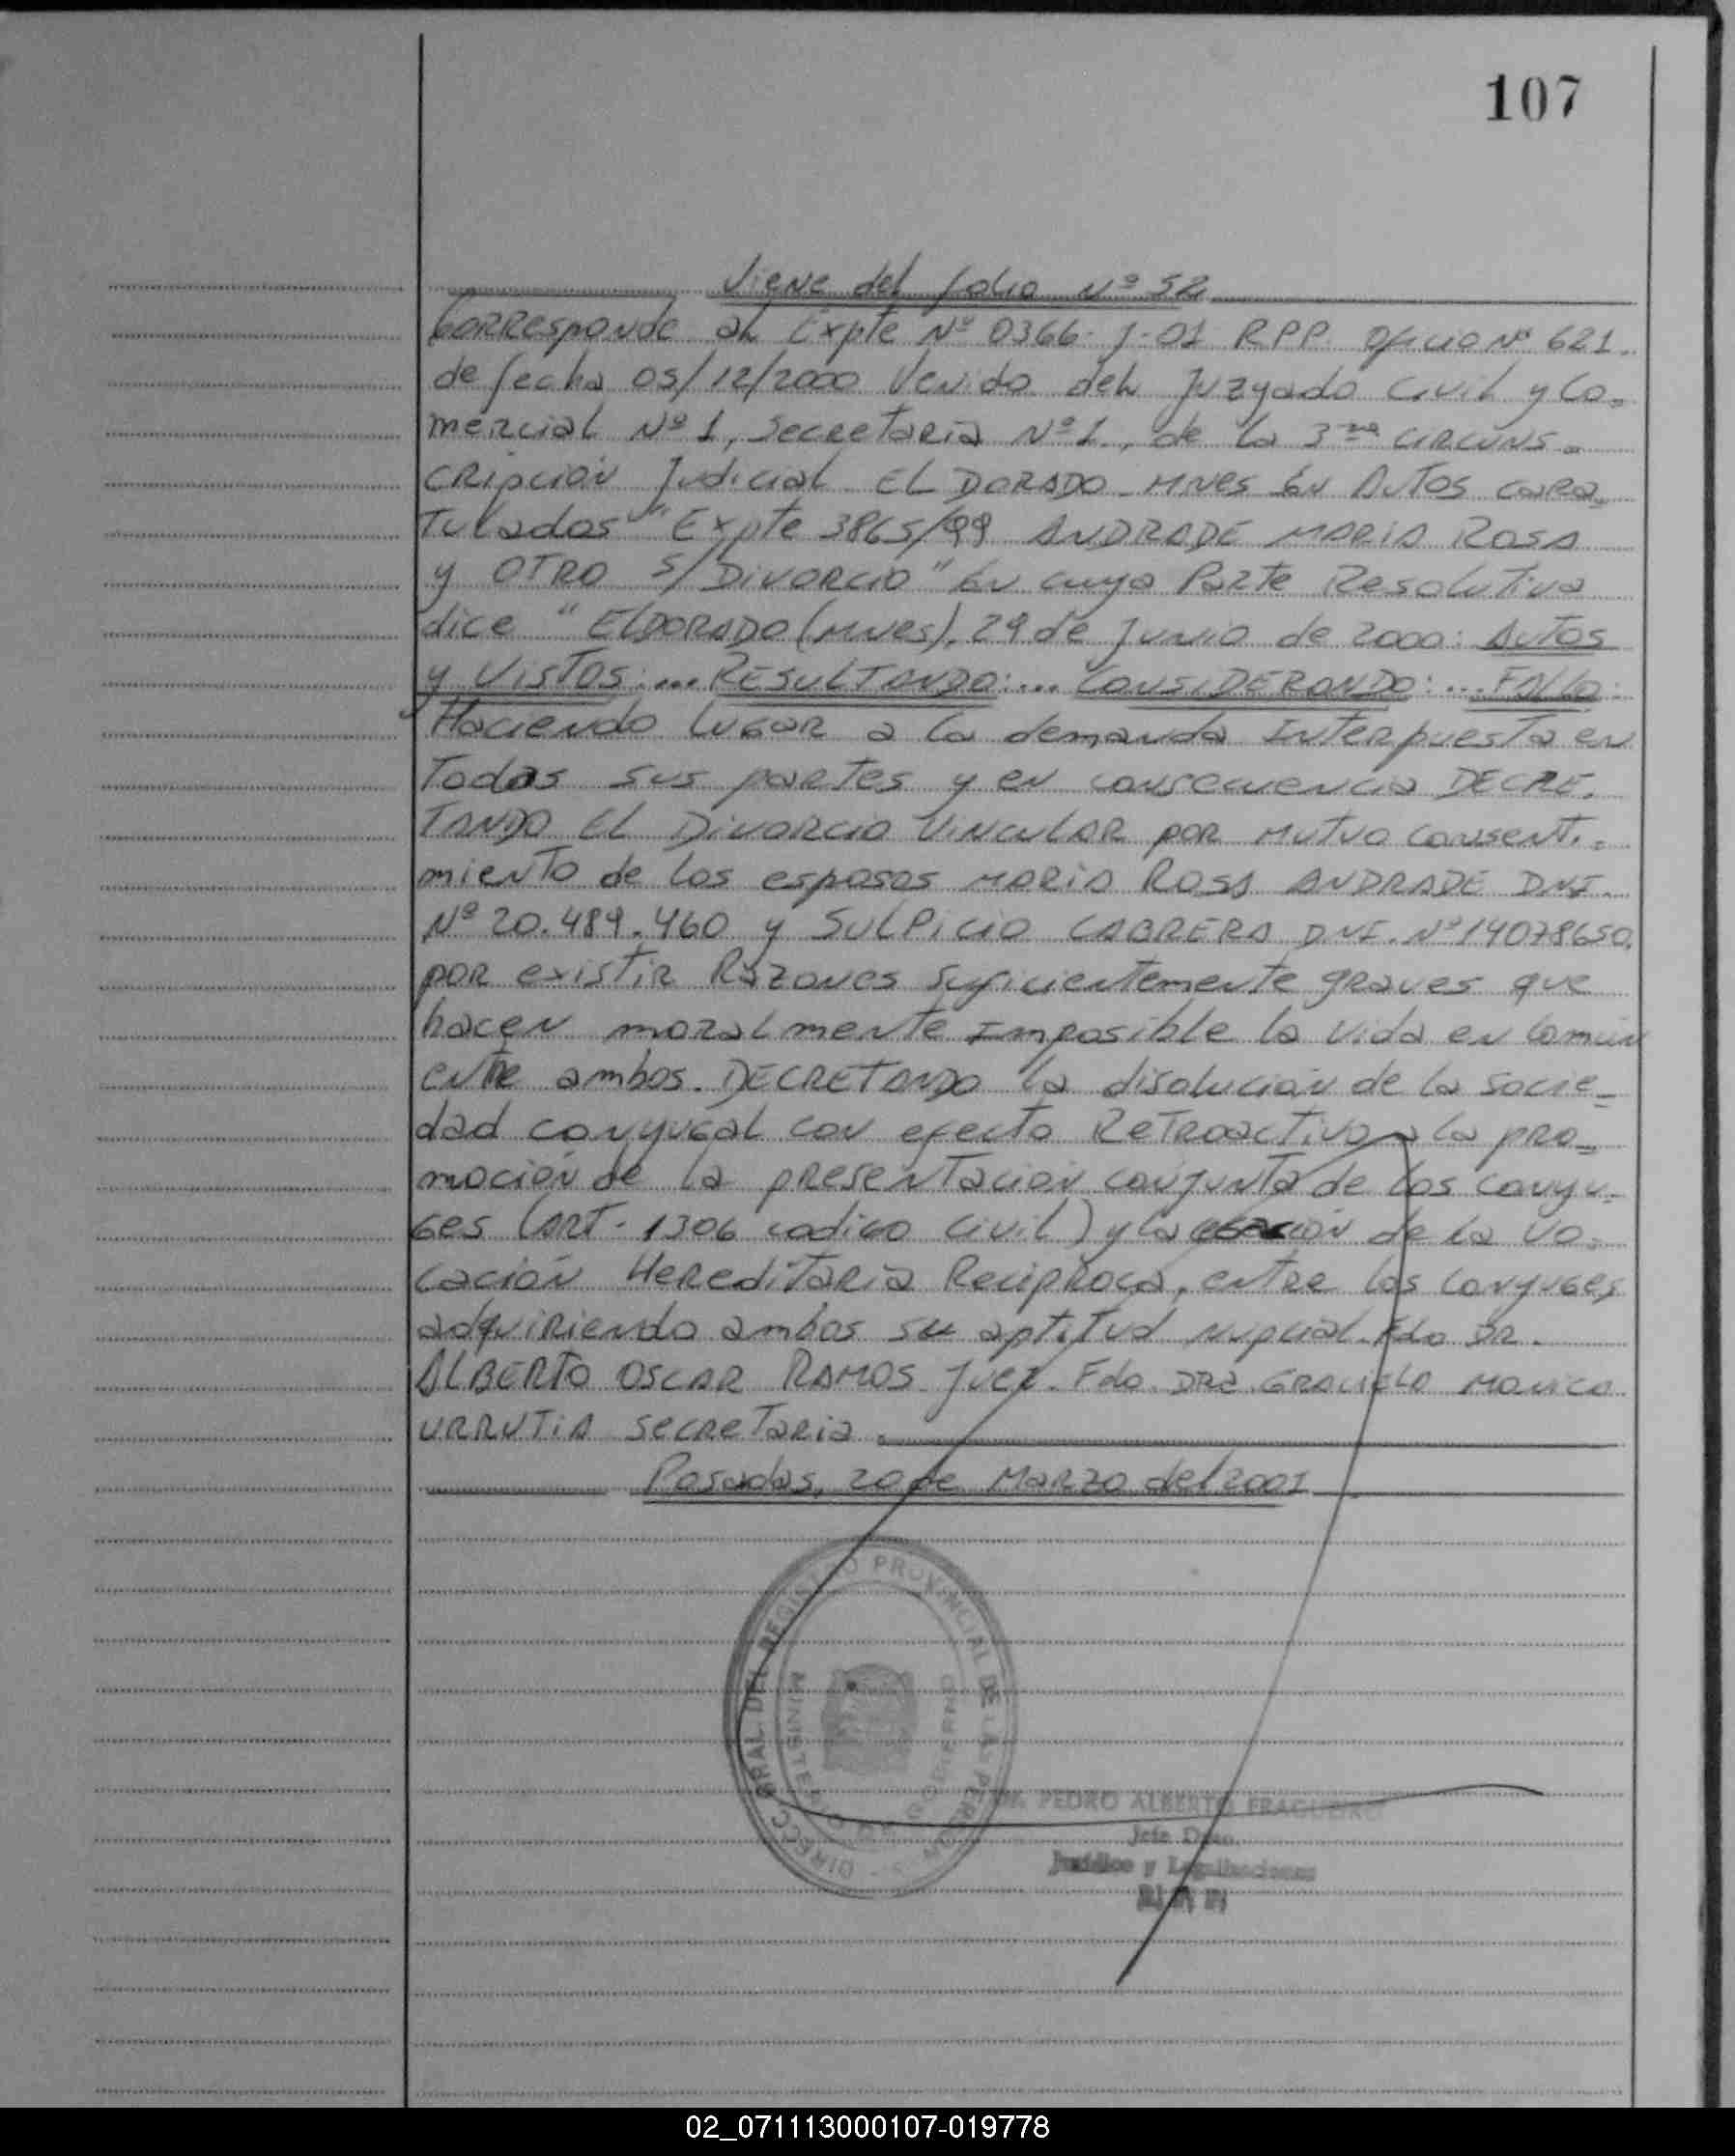 107
Viene del folio Nº 52
Corresponde al Expte Nº 0366-J-01 RPP. Oficio Nº 621.
de fecha 05/12/2000 Venido del Juzgado Civil y Co-
mercial Nº 1, Secretaria Nº 1., de la 3ra CIRCUNS-
CRIPCIÓN Judicial EL DORADO - MNES En AUTOS CARA-
TULADOS "Expte 3865/99 ANDRADE MARIA ROSA
y OTRO S/DIVORCIO" En cuya Parte Resolutiva
dice "ELDORADO (MNes), 29 de Junio de 2000: AUTOS
y VISTOS:... RESULTANDO:... CONSIDERANDO:... FALLO:
Haciendo lugar a la demanda Interpuesta en
Todas sus partes y en consecuencia DECRE-
TANDO EL Divorcio VINCULAR por mutuo consenti-
miento de los esposos MARIA ROSA ANDRADE DNI.
Nº 20.489.460 y SULPICIO CABRERA DNI. Nº 14078650.
por existir Razones suficientemente graves que
hacen moralmente Imposible la vida en común
entre ambos. DECRETANDO la disolución de la socie-
dad conyugal con efecto Retroactivo a la pro-
moción de la presentación conjunta de los conyu-
ges (ART. 1306 codigo Civil) y la de la vo-
cación Hereditaria Reciproca, entre los conyuges,
adquiriendo ambos su aptitud nupcial. Fdo DR.
ALBERTO OSCAR RAMOS Juez. Fdo. DRA. GRACIELA MONICA
URRUTIA Secretaria.
Posadas, 20 de Marzo del 2001
DIRECC. GRAL DEL REGISTRO PROVINCIAL DE LAS PERSONAS
MINISTERIO DE GOBIERNO
DR. PEDRO ALBERTO FRAGUEIRO
Jefe Dpto.
Jurídico y Legalizaciones
02_071113000107-019778